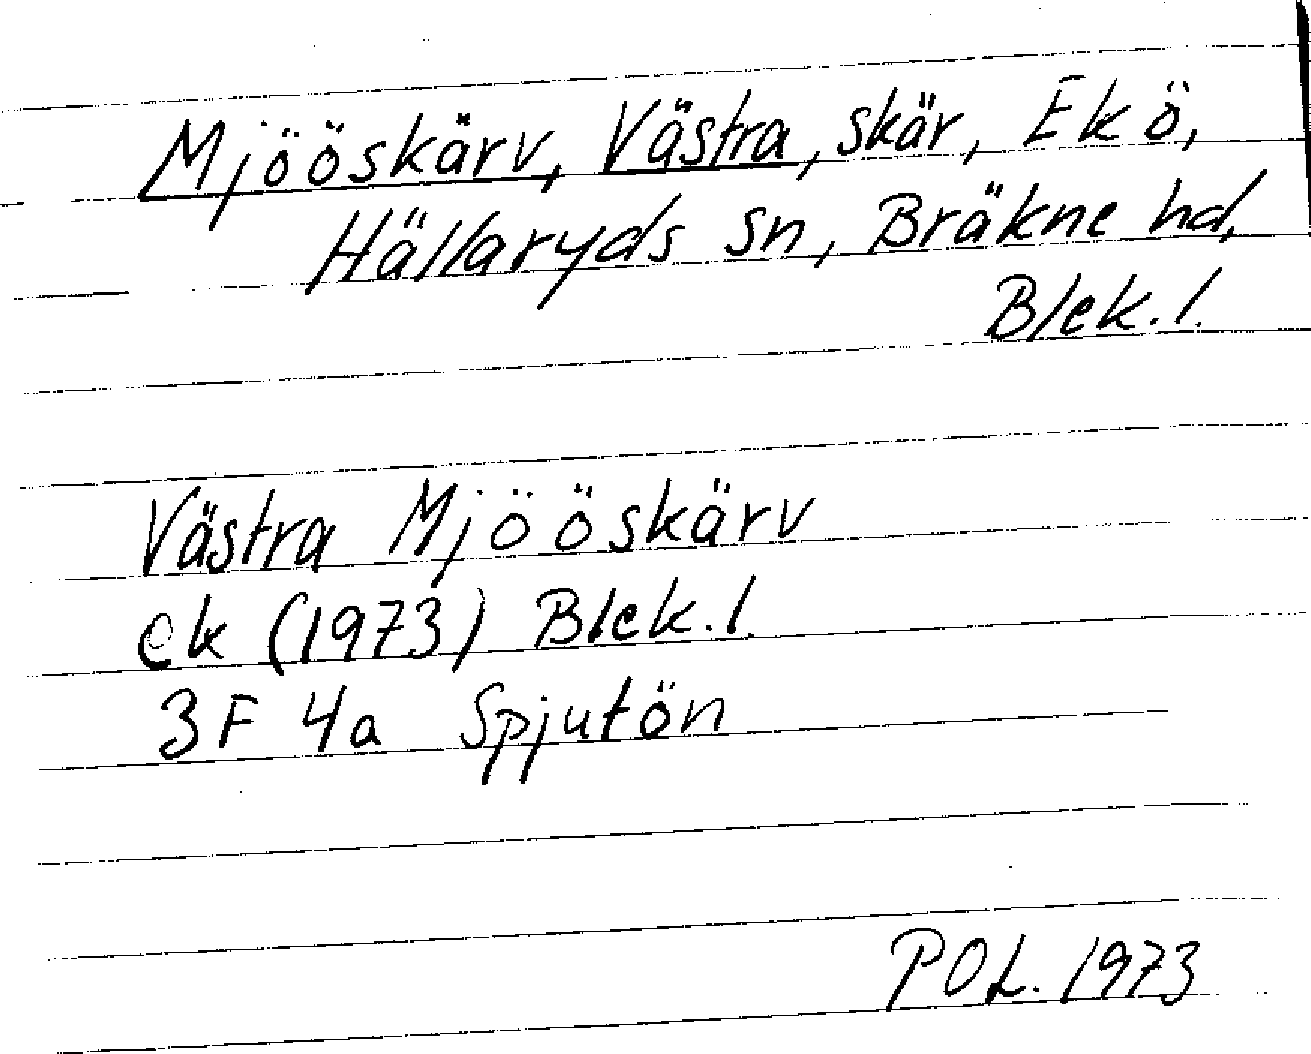 Mjööskärv, Västra, skär, Ekö,
Hällaryds sn, Bräkne hd,
Blek.l.
Västra Mjööskärv
ek (1973) Blek.l.
3F 4a Spjutön
POL. 1973